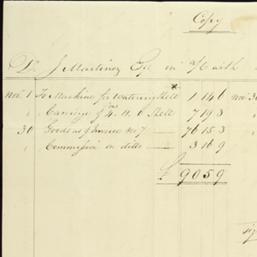 Copy
Dr J. Martinez Esq in a/c with
Novr 1 To Machine for Watering 1 14 6 Novr 30
" Carriage of 4. 7 19 8
30 Goods as p Invoice No 7 — 76 15 3
" Commission on ditto — 3 16 9
£ 90 5 9